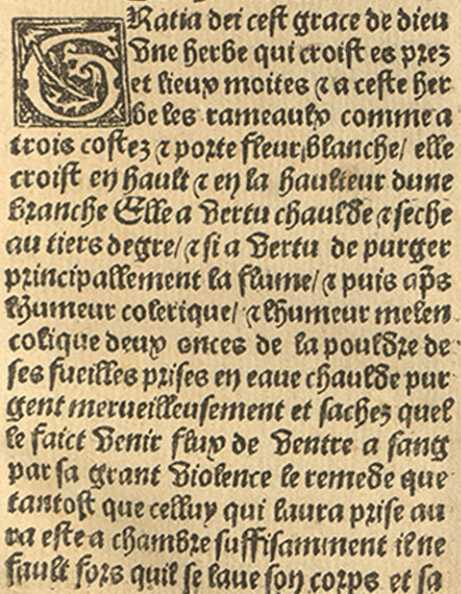 GRatia dei cest grace de dieu
Une herbe qui croist es prez
et lieux moites ⁊ a ceste her
be les rameaulx comme a
trois costez ⁊ porte fleur blanche/ elle
croist en hault ⁊ en la haulteur dune
branche Elle a vertu chaulde ⁊ seche
au tiers degre/ ⁊ si a vertu de purger
principallement la flume/ ⁊ puis ap̃s
lhumeur colerique/ ⁊ lhumeur melen
colique deux onces de la pouldre de
ses fueilles prises en eaue chaulde pur
gent merueilleusement et sachez quel
le faict venir flux de ventre a sang
par sa grant violence le remede que
tantost que celluy qui laura prise au
ra este a chambre suffisamment il ne
fault fors quil se laue son corps et sa